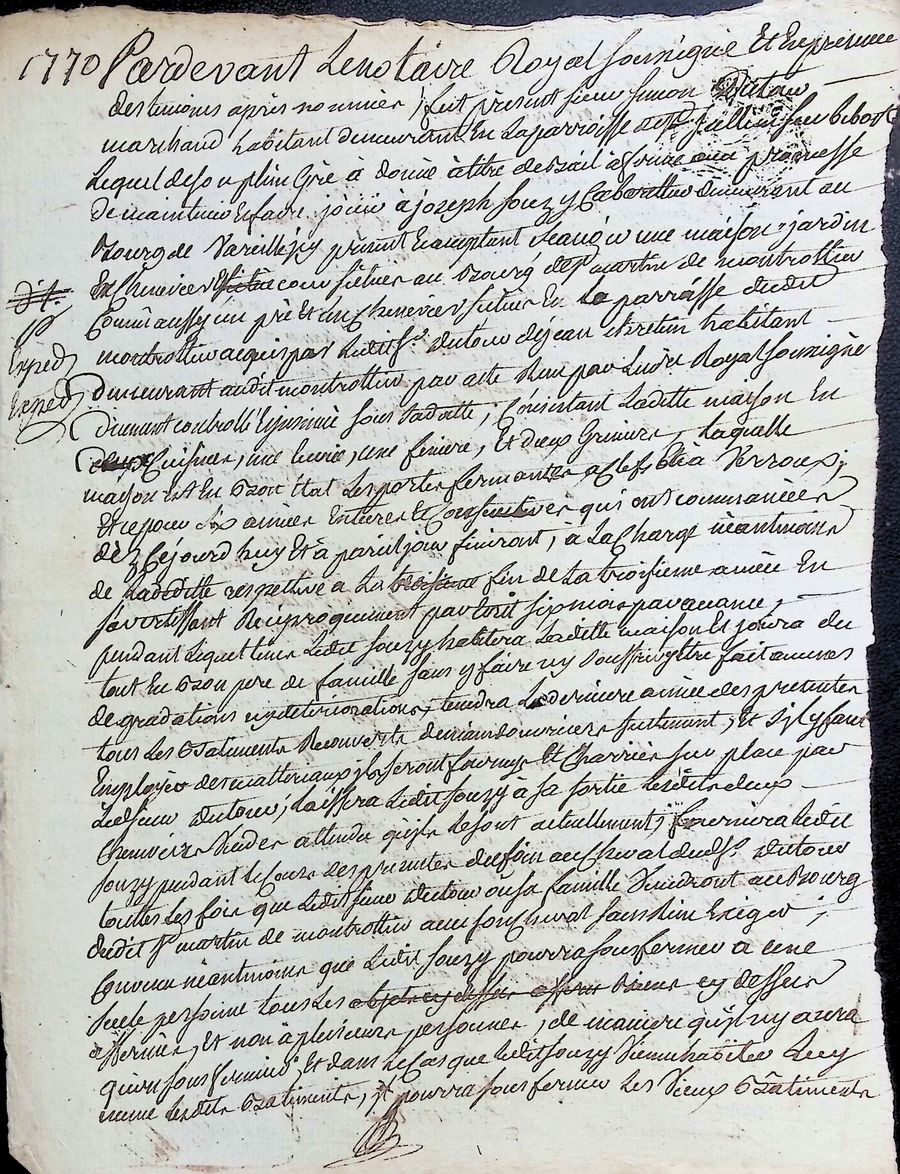 1770 Pardevant Le notaire Royal soussigné Et En presence
des temoins après nommés, fut présent sieur simon Dutour
marchand habitant demeurant En La parroisse de st jullien sur bibost
Lequel de son plein Gré à donné à titre de bail à ferme avec promesse
de maintenir En faire joüir a joseph souzy Cabarettier demeurant au
Bourg de Vareilles, y présent Et acceptant scavoir une maison, jardin
En Chenevier situés au Bourg de st martin de montrottier
Comm' aussy un pré Et un Chenevier situés En La parroisse dudit
montrottier acquis par Ledit sr. dutour de jean chretin habitant
demeurant audit montrottier par acte Reçu par Ledit Royal soussigné
Düement controllé Et insinué sous sa datte, Consistant Ladette maison En
deux Cuisines, une Ecurie, une feniere, Et deux Greniers, Laquelle
maison Est En Bon Etat Les portes fermantes a Clefs Et à Verroux;
Et ce pour six années Entieres Et Consecutives qui ont commancées
dèz Cejourdhuy Et à pareil jour finiront, à La Charge néantmoins
de La deditte respective a La troisieme fin de La troisieme année En
s'avertissant Reciproquement par Ecrit six mois par avance,
pendant Lequel tems Ledit souzy habitera Ladette maison Et joüira du
tout En Bon pere de famille sans y faire ny souffrir Etre fait aucunes
degradations ny deteriorations, tiendra La derniere année des presentes
tous Les Batiments Recouverts de main d'ouvriers seulement, Et s'il y faut
Employer des matteriaux ils seront fournys Et Charriés sur place par
Ledit sieur dutour; Laissera Ledit souzy à sa sortie Lesdits deux
Cheneviers Vuides attendu qu'ils Le sont actuellement; fournira Ledit
souzy pendant Le Cours des presentes du foin au Cheval dudit sr. dutour
touttes Les fois que Ledit sieur dutour ou sa famille Viendront au Bourg
dudit st martin de montrottier avec son cheval sans rien Exiger;
Convenu néantmoins que Ledit souzy pourra sousfermer a une
seule personne tous Les objets cy dessus affermés Biens cy dessus
affermés, Et non à plusieurs personnes, de maniere qu'il n'y aura
qu'un sousfermier, Et dans Le Cas que Ledit souzy Vienne habiter Luy
même Lesdits Batiments, il pourra sousfermer Les Vieux Batiments
dit.
Exped
Exped